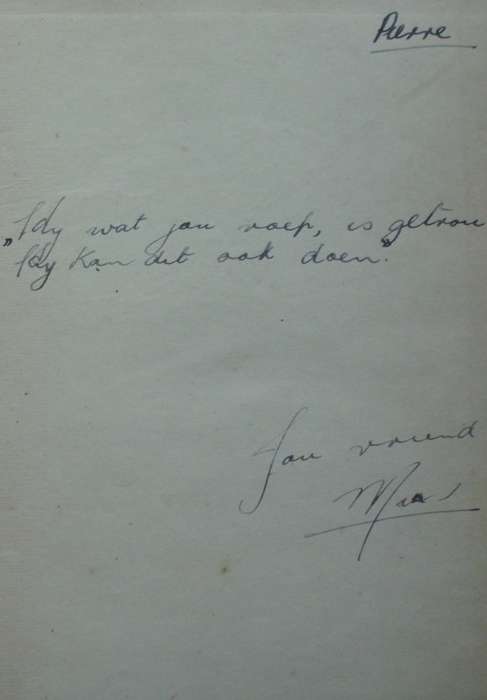 Pierre
„Hy wat jou roep, is getrou
Hy kan dit ook doen."
Jou vriend